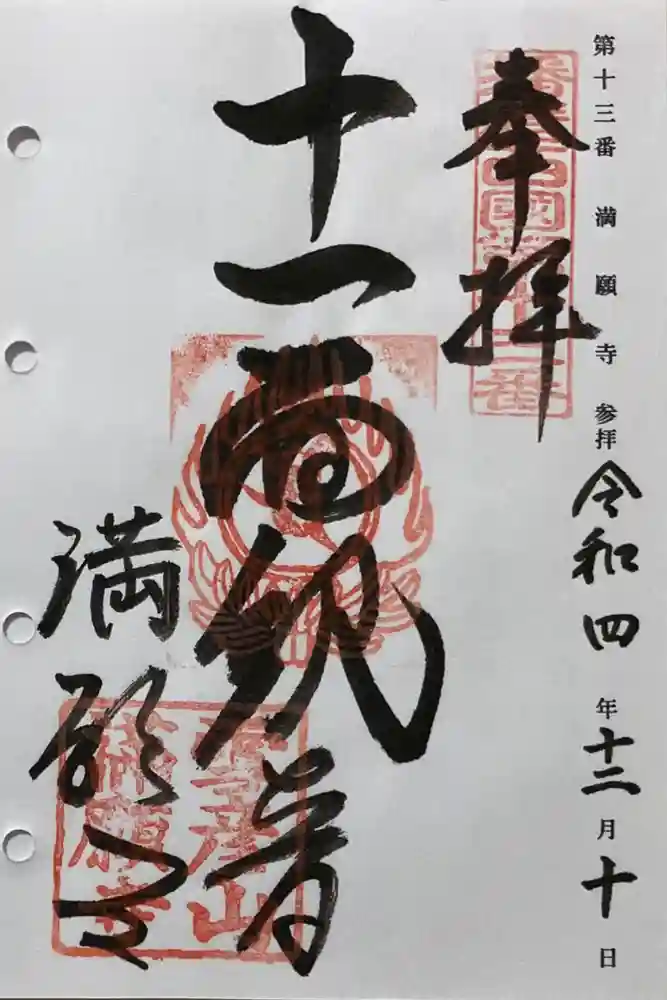 第十三番 満願寺 参拝 令和四年十二月十日
奉拝
十一面観音
満願寺
満願寺